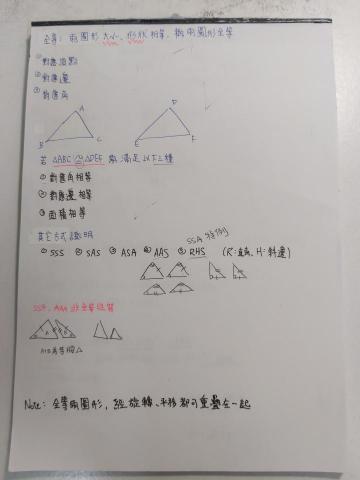 全等: 兩圖形大小、形狀相等, 稱兩圖形全等
① 對應頂點
② 對應邊
③ 對應角
A
B
C
D
E
F
若 △ABC ≅ △DEF 需滿足以下三種
① 對應角相等
② 對應邊相等
③ 面積相等
其它方式證明
SSA 特例
① SSS ② SAS ③ ASA ④ AAS ⑤ RHS (R:直角、H:斜邊)
SSA、AAA 非全等性質
Note: 全等兩圖形, 經旋轉、平移都可重疊在一起